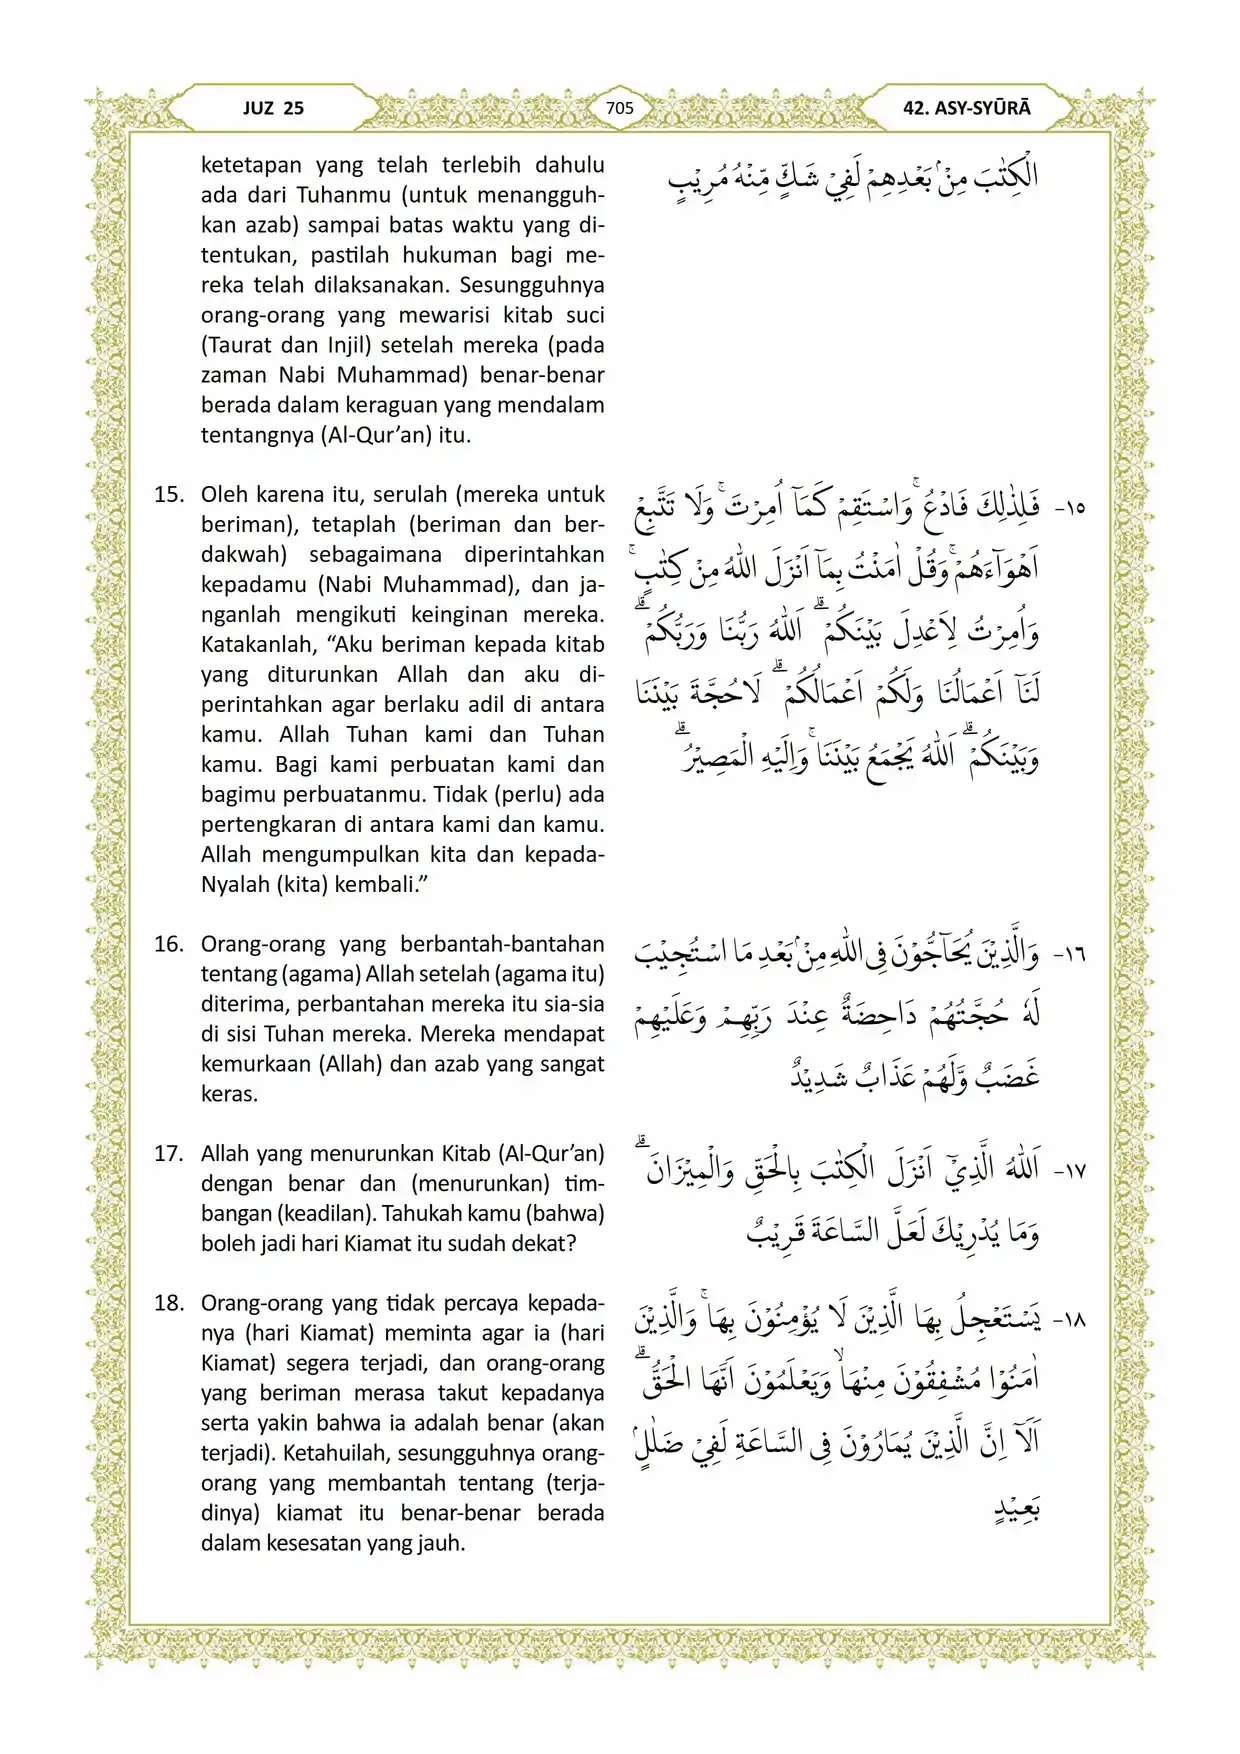 JUZ 25
705
42. ASY-SYŪRĀ
ketetapan yang telah terlebih dahulu
ada dari Tuhanmu (untuk menangguh-
kan azab) sampai batas waktu yang di-
tentukan, pastilah hukuman bagi me-
reka telah dilaksanakan. Sesungguhnya
orang-orang yang mewarisi kitab suci
(Taurat dan Injil) setelah mereka (pada
zaman Nabi Muhammad) benar-benar
berada dalam keraguan yang mendalam
tentangnya (Al-Qur’an) itu.
الْكِتٰبَ مِنْۢ بَعْدِهِمْ لَفِيْ شَكٍّ مِّنْهُ مُرِيْبٍ
15. Oleh karena itu, serulah (mereka untuk
beriman), tetaplah (beriman dan ber-
dakwah) sebagaimana diperintahkan
kepadamu (Nabi Muhammad), dan ja-
nganlah mengikuti keinginan mereka.
Katakanlah, “Aku beriman kepada kitab
yang diturunkan Allah dan aku di-
perintahkan agar berlaku adil di antara
kamu. Allah Tuhan kami dan Tuhan
kamu. Bagi kami perbuatan kami dan
bagimu perbuatanmu. Tidak (perlu) ada
pertengkaran di antara kami dan kamu.
Allah mengumpulkan kita dan kepada-
Nyalah (kita) kembali.”
١٥- فَلِذٰلِكَ فَادْعُ ۚوَاسْتَقِمْ كَمَآ اُمِرْتَۚ وَلَا تَتَّبِعْ
اَهْوَاۤءَهُمْۚ وَقُلْ اٰمَنْتُ بِمَآ اَنْزَلَ اللّٰهُ مِنْ كِتٰبٍۚ
وَاُمِرْتُ لِاَعْدِلَ بَيْنَكُمْۗ اَللّٰهُ رَبُّنَا وَرَبُّكُمْۗ
لَنَآ اَعْمَالُنَا وَلَكُمْ اَعْمَالُكُمْۗ لَاحُجَّةَ بَيْنَنَا
وَبَيْنَكُمْۗ اَللّٰهُ يَجْمَعُ بَيْنَنَاۚ وَاِلَيْهِ الْمَصِيْرُۗ
16. Orang-orang yang berbantah-bantahan
tentang (agama) Allah setelah (agama itu)
diterima, perbantahan mereka itu sia-sia
di sisi Tuhan mereka. Mereka mendapat
kemurkaan (Allah) dan azab yang sangat
keras.
١٦- وَالَّذِيْنَ يُحَاۤجُّوْنَ فِى اللّٰهِ مِنْۢ بَعْدِ مَا اسْتُجِيْبَ
لَهٗ حُجَّتُهُمْ دَاحِضَةٌ عِنْدَ رَبِّهِمْ وَعَلَيْهِمْ
غَضَبٌ وَّلَهُمْ عَذَابٌ شَدِيْدٌ
17. Allah yang menurunkan Kitab (Al-Qur’an)
dengan benar dan (menurunkan) tim-
bangan (keadilan). Tahukah kamu (bahwa)
boleh jadi hari Kiamat itu sudah dekat?
١٧- اَللّٰهُ الَّذِيْٓ اَنْزَلَ الْكِتٰبَ بِالْحَقِّ وَالْمِيْزَانَۗ
وَمَا يُدْرِيْكَ لَعَلَّ السَّاعَةَ قَرِيْبٌ
18. Orang-orang yang tidak percaya kepada-
nya (hari Kiamat) meminta agar ia (hari
Kiamat) segera terjadi, dan orang-orang
yang beriman merasa takut kepadanya
serta yakin bahwa ia adalah benar (akan
terjadi). Ketahuilah, sesungguhnya orang-
orang yang membantah tentang (terja-
dinya) kiamat itu benar-benar berada
dalam kesesatan yang jauh.
١٨- يَسْتَعْجِلُ بِهَا الَّذِيْنَ لَا يُؤْمِنُوْنَ بِهَاۚ وَالَّذِيْنَ
اٰمَنُوْا مُشْفِقُوْنَ مِنْهَاۙ وَيَعْلَمُوْنَ اَنَّهَا الْحَقُّۗ
اَلَآ اِنَّ الَّذِيْنَ يُمَارُوْنَ فِى السَّاعَةِ لَفِيْ ضَلٰلٍۢ
بَعِيْدٍ